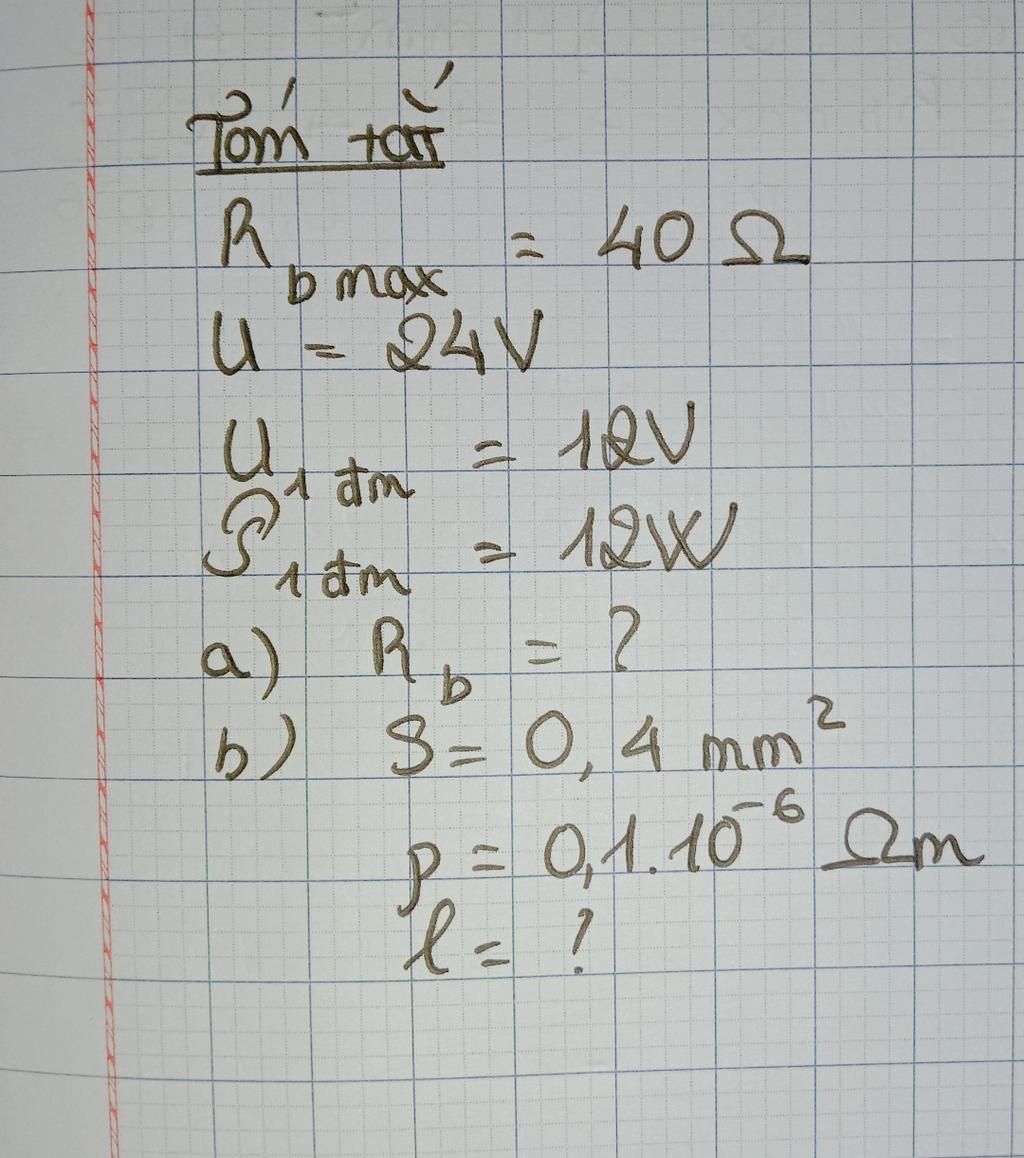 Tóm tắt
R b max = 40 Ω
U = 24V
U 1 đm = 12V
P 1 đm = 12W
a) R b = ?
b) S = 0,4 mm²
ρ = 0,1.10⁻⁶ Ωm
l = ?